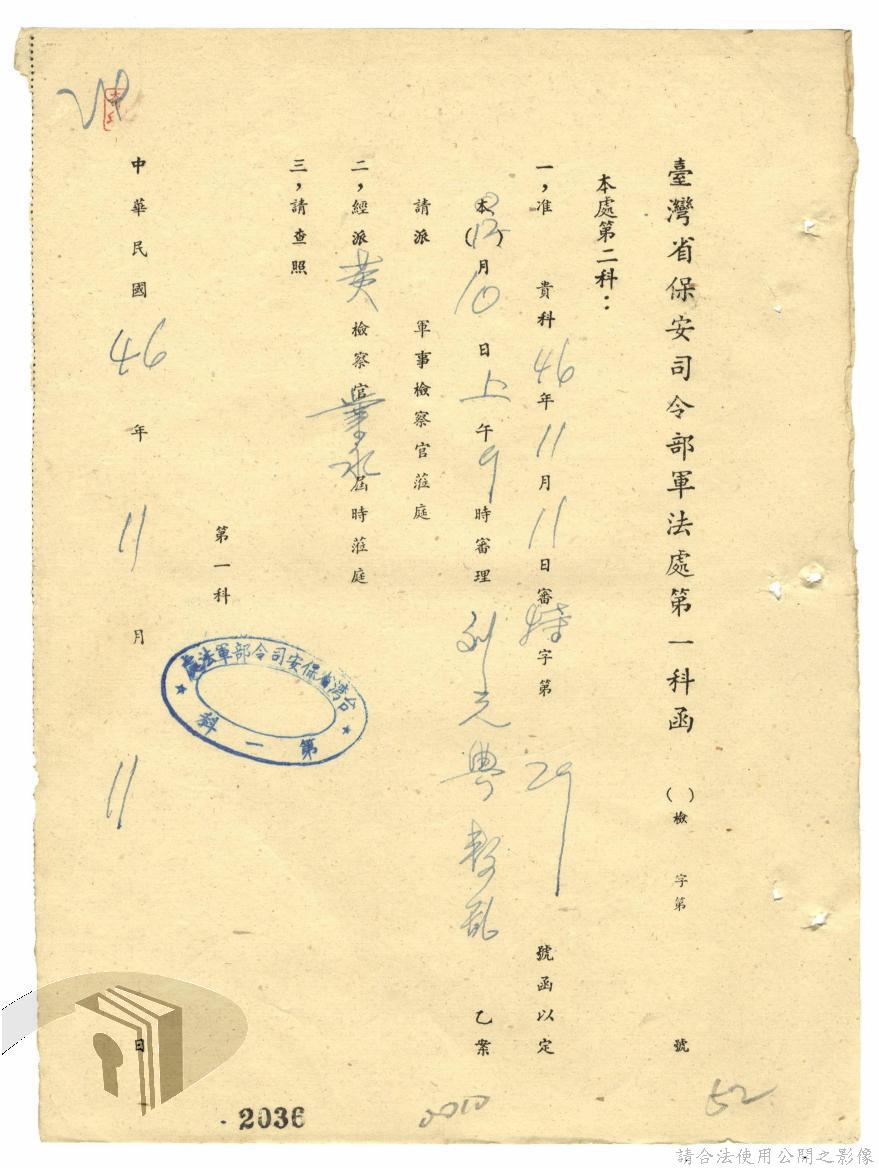 臺灣省保安司令部軍法處第一科函 ( )檢 字第 號
本處第二科：
一，准 貴科46年11月11日審特字第29號函以定
本(12)月10日上午9時審理 劉元興叛亂 乙案
請派 軍事檢察官蒞庭
二，經派黃檢察官業永屆時蒞庭
三，請查照
第一科
台湾省保安司令部軍法處
第一科
中華民國46年11月11日
2036
0010
52
請合法使用公開之影像